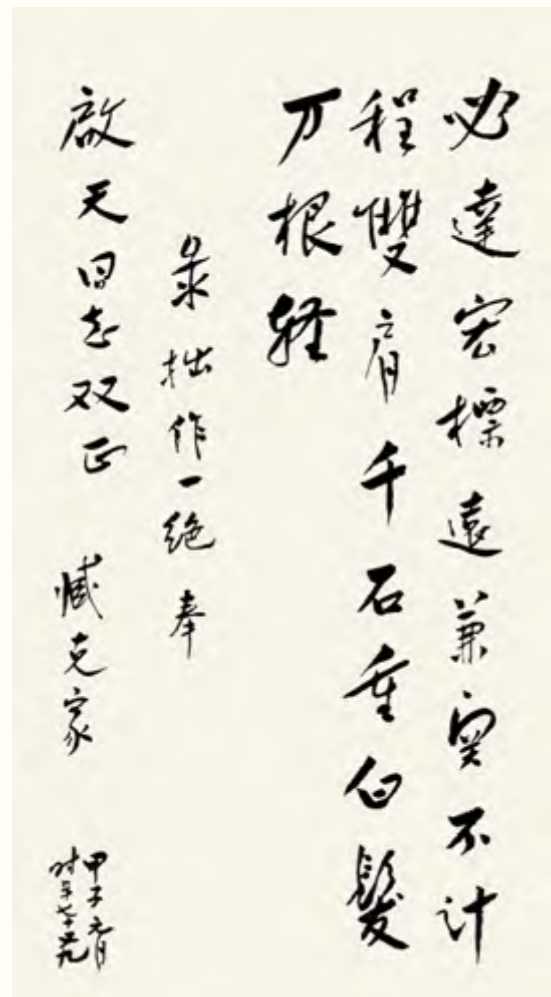 必達宏標遠兼不計
程雙肩千石重白髮
万根輕
录拙作一绝奉
啟天同志双正 臧克家
甲子元月
时年七十九